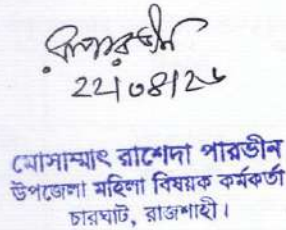 22/08/26
মোসাম্মাৎ রাশেদা পারভীন
উপজেলা মহিলা বিষয়ক কর্মকর্তা
চারঘাট, রাজশাহী।